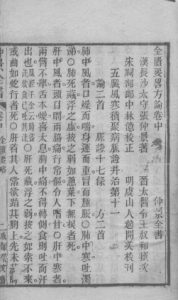 金匱要略方論卷中　仲景全書
漢長沙太守張仲景著　晉太醫令王叔和撰次
林億校正　明虞山人趙開美校刊
五臟風寒積聚病脈證并治第十一
論二首　脈證十七條　方二首
肺中風者口燥而喘身運而重冒而腫脹○肺中寒吐濁
涕○肺死臟浮之虛按之弱如蔥葉下無根者死
肝中風者頭目瞤兩脇痛行常傴令人嗜甘○肝中寒者
兩臂不舉舌本燥喜太息胸中痛不得轉側食則吐而汗
出也○肝死臟浮之弱按之如索不來
或曲如蛇行者死○肝著其人常欲蹈其胸上先未苦時